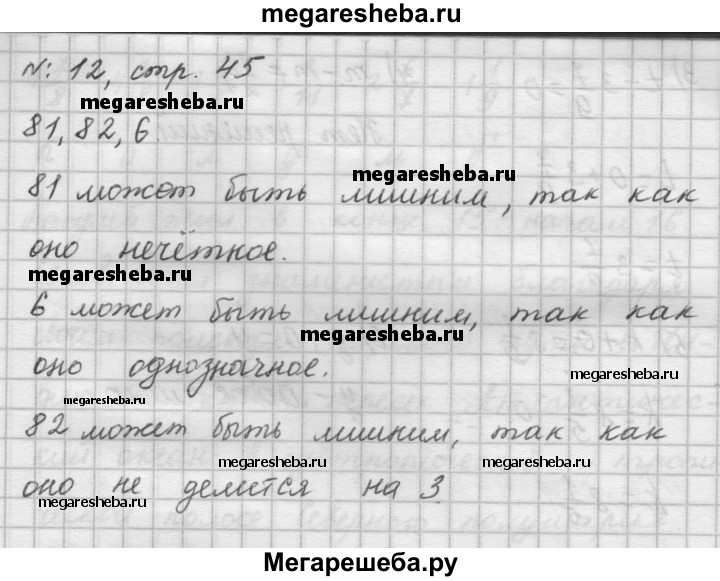 megaresheba.ru
№ 12, стр. 45
megaresheba.ru
81, 82, 6.
megaresheba.ru
81 может быть лишним, так как
оно нечётное.
megaresheba.ru
6 может быть лишним, так как
megaresheba.ru
оно однозначное.
megaresheba.ru
megaresheba.ru
82 может быть лишним, так как
megaresheba.ru megaresheba.ru
оно не делится на 3
megaresheba.ru megaresheba.ru
Мегарешеба.ру